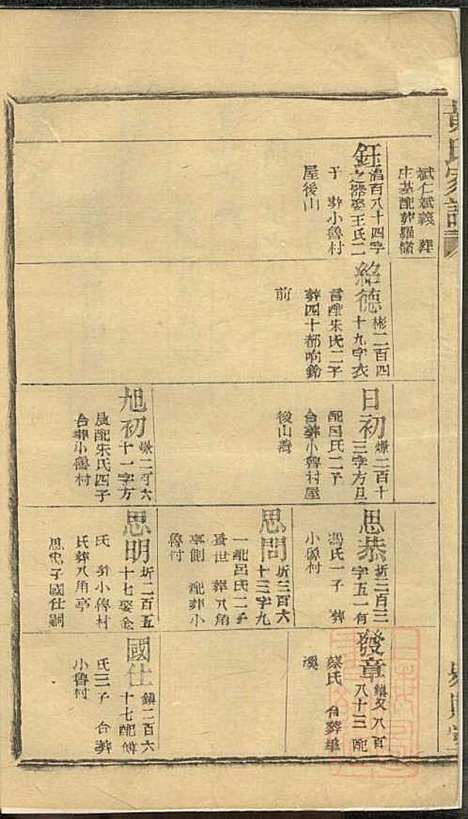 黃氏家譜
斌仁斌義 葬
生基配葬羅嶺
鈺 濬百八十四字
之器娶王氏二
子 葬小魯村
屋後山
紹德 彬二百四
十九字衣
言配朱氏二子
葬四十都响鈴
前
日初 㷿二百十
三字方旦
配呂氏二子
合葬小魯村屋
後山灣
旭初 㷿二百六
十一字方
晨配朱氏四子
合葬小魯村
思恭 圻二百三
字五一有
馮氏一子 葬
小魯村
思問 圻三百六
十三字九
一配呂氏二子
葬八角
亭側 配葬小
魯村
思明 圻二百五
十七娶金
氏 葬小魯村
氏葬八角亭
思忠子國仕嗣
發章 鎮 八百
八十三 配
蔡氏 合葬
溪
國仕 鎮二百六
十七配傅
氏三子 合葬
小魯村